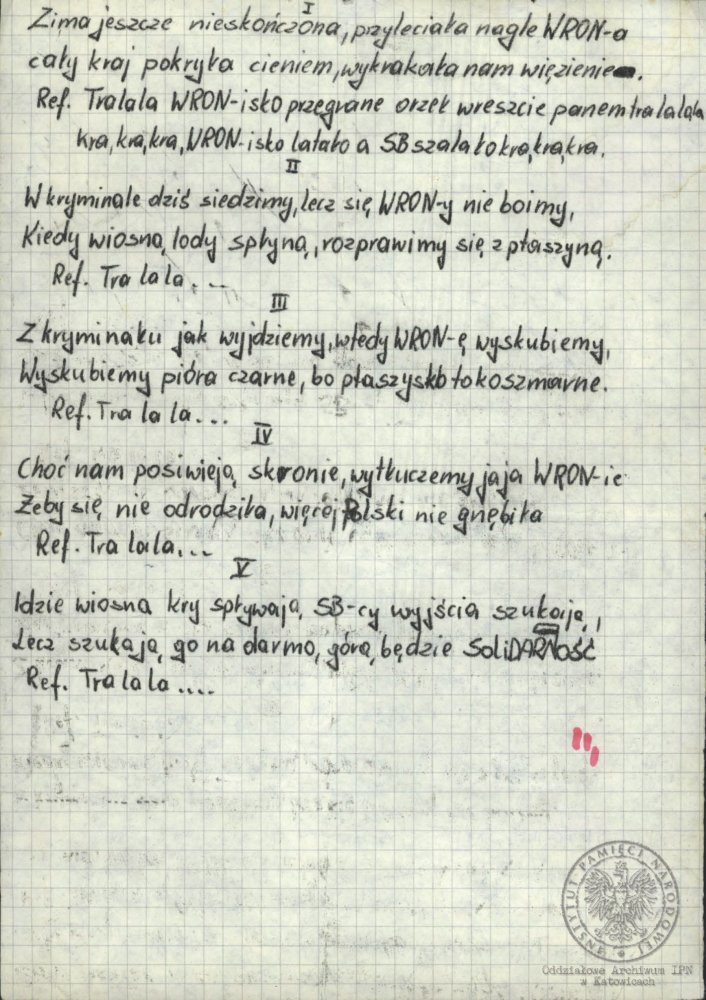 I
Zima jeszcze nieskończona, przyleciała nagle WRON-a
cały kraj pokryła cieniem, wykrakała nam więzienie.
Ref. Tralala WRON-isko przegrane orzeł wreszcie panem tra la lala
Kra, kra, kra, WRON-isko latało a SB szalało kra, kra, kra.
II
W kryminale dziś siedzimy, lecz się WRON-y nie boimy,
Kiedy wiosną lody spłyną, rozprawimy się z ptaszyną.
Ref. Tra la la...
III
Z kryminału jak wyjdziemy, wtedy WRON-ę wyskubiemy,
Wyskubiemy pióra czarne, bo ptaszysko to koszmarne.
Ref. Tra la la...
IV
Choć nam posiwieją skronie, wytłuczemy jaja WRON-ie
Żeby się nie odrodziła, więcej Polski nie gnębiła
Ref. Tra lala...
V
Idzie wiosna kry spływają, SB-cy wyjścia szukają,
Lecz szukają go na darmo, górą będzie SoliDARNOŚĆ
Ref. Tra la la....
INSTYTUT PAMIĘCI NARODOWEJ
Oddziałowe Archiwum IPN
w Katowicach